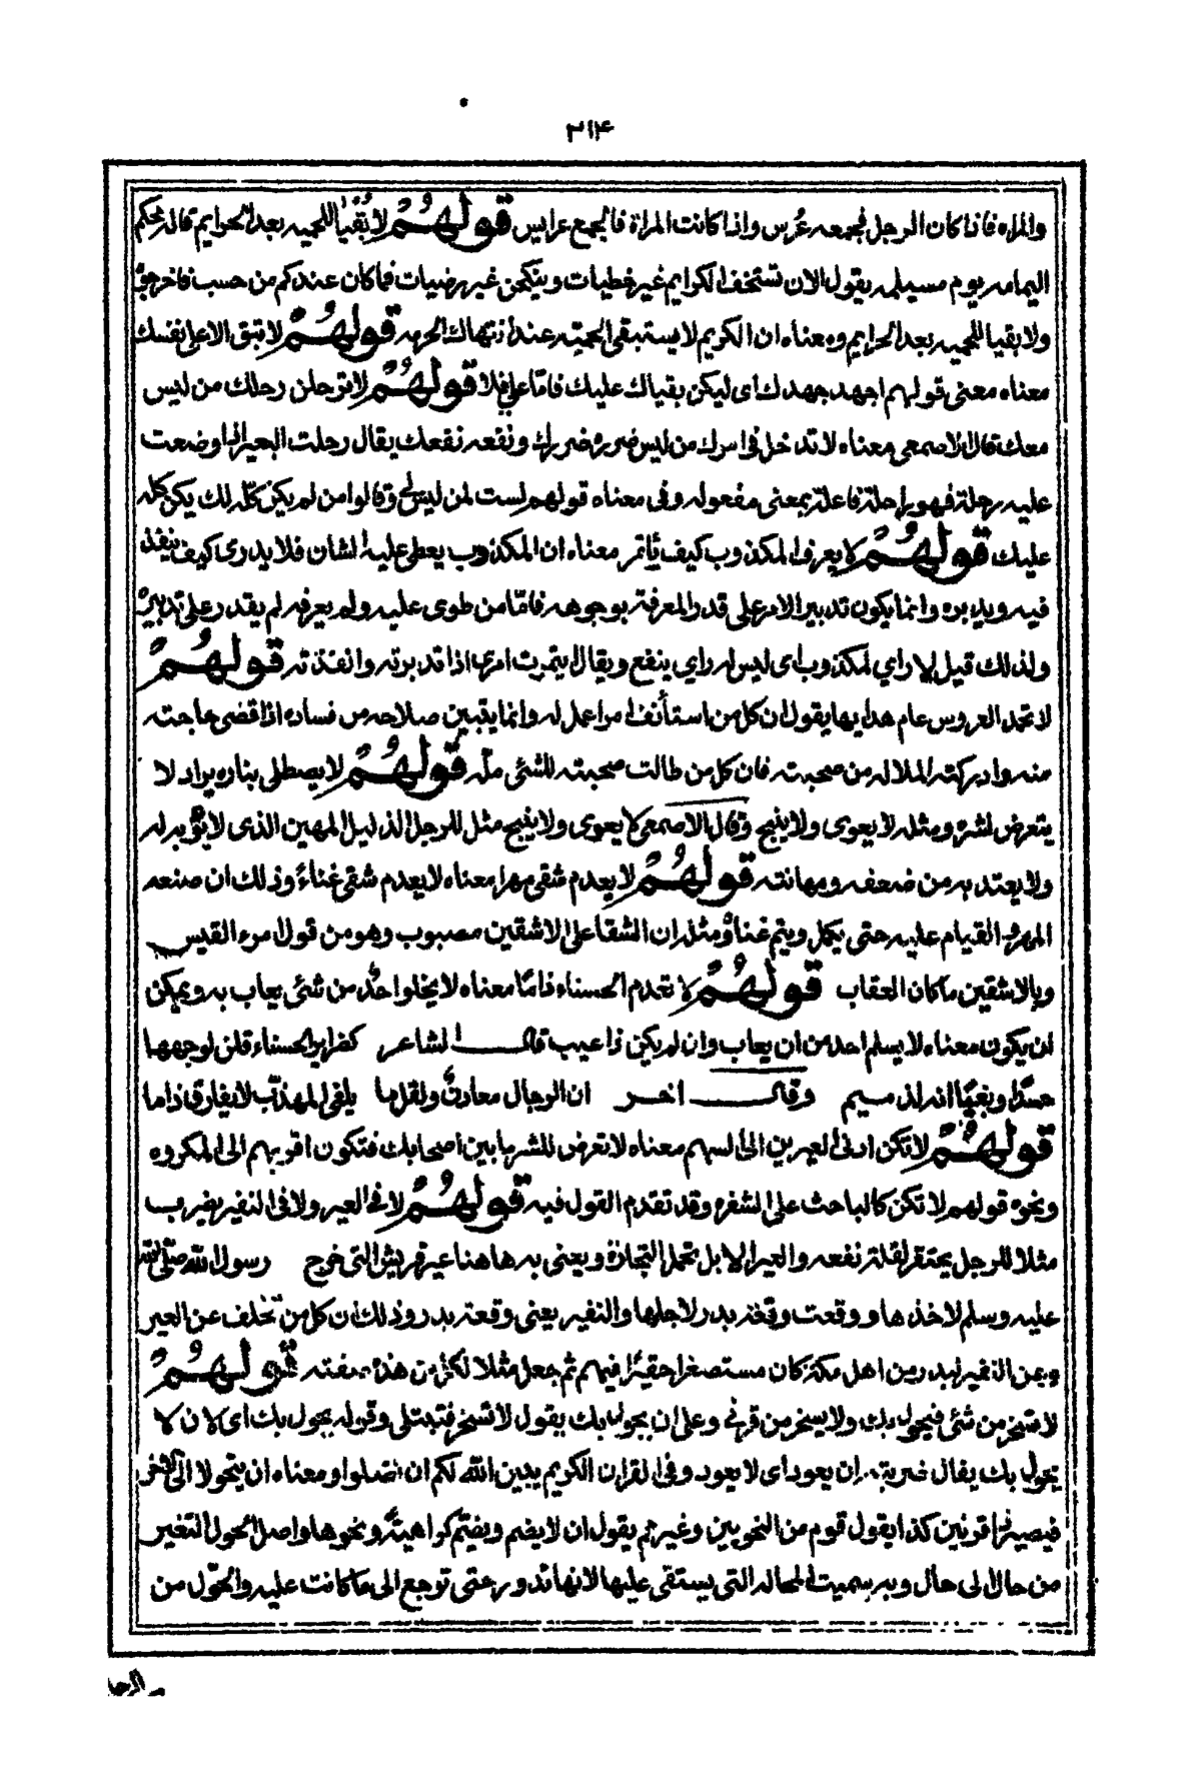 ٢١٤
والمراه فاذا كان الرجل فجمعه عُرس واذا كانت المراة فالجمع عرايس قولهم لا بُقيا للحميه بعد الحرايم قاله محكم
اليمامه يوم مسيلمه يقول الان تستخف الكرايم غير خطيات وينكحن غير رضيات فما كان عندكم من حسب فاخرجوه
ولا بقيا للحميه بعد الحرايم ومعناه ان الكريم لا يستبقى الحميته عند انتهاك الحرمه قولهم لا تبق الا على نفسك
معناه معنى قولهم اجهد جهدك اى ليكن بقياك عليك فامّا على فلا قولهم لا ترحلن رحلك من ليس
معك قال الاصمعى معناه لا تدخل فى امرك من ليس ضرره ضررك ونفعه نفعك يقال رحلت البعير اذا وضعت
عليه رحلة فهو راحلة فاعلة بمعنى مفعوله وفى معناه قولهم لست لمن ليس لى وقالوا من لم يكن كله لك يكن كله
عليك قولهم لا يعرف المكذوب كيف ياتمر معناه ان المكذوب يعطى عليه الشان فلا يدرى كيف ينفذ
فيه ويدبره وانما يكون تدبير الامر على قدر المعرفة بوجوهه فامّا من طوى عليه ولم يعرفه لم يقدر على تدبيره
ولذلك قيل لا راي لمكذوب اى ليس له راي ينفع ويقال ايتمرت امرى اذا تدبرته وانفذته قولهم
لا تحمد العروس عام هدايها يقول ان كل من استأنف امرا عمل له وانما يتبين صلاحه من فساده اذا قضى حاجته
منه وادركته الملاله من صحبته فان كل من طالت صحبته للشئى ملّه قولهم لا يصطلى بناره يراد لا
يتعرض لشره ومثله لا يعوى ولا ينبح وقال الاصمعى لا يعوى ولا ينبح مثل للرجل الذليل المهين الذى لا يؤبه له
ولا يعتد به من ضعفه ومهانته قولهم لا يعدم شقى مهرا معناه لا يعدم شقى غناءً وذلك ان صنعه
المهر القيام عليه حتى يكمل ويتم غناؤه ومثله ان الشقا على الاشقين مصبوب وهو من قول امرء القيس
وبالاشقين ما كان العقاب قولهم لا تعدم الحسناء ذامًا معناه لا يخلوا احدٌ من شئى يعاب به ويمكن
ان يكون معناه لا يسلم احد من ان يعاب وان لم يكن ذا عيب قال الشاعر كضراير الحسناء قلن لوجهها
حسدًا وبغيًا انه لذميم وقال اخر ان الرجال معادنٌ ولقل ما يلفى المهذّب لا يفارق ذاما
قولهم لا تكن ادنى العيرين الى السهم معناه لا تعرض للشر ما بين اصحابك فتكون اقربهم الى المكروه
ونحوه قولهم لا تكن كالباحث على الشفره وقد تقدم القول فيه قولهم لا فى العير ولا فى النفير يضرب
مثلا للرجل يحتقر لقلة نفعه والعير الابل تحمل التجارة ويعنى به هاهنا عير قريش التى خرج رسول الله صلى الله
عليه وسلم لاخذها ووقعت وقعة بدر لاجلها والنفير يعنى وقعة بدر وذلك ان كل من تخلف عن العير
وعن النفير لبدر من اهل مكة كان مستصغرا حقيرًا فيهم ثم جعل مثلا لكل من هذه صفته قولهم
لا تسخر من شئى فيحول بك ولا يسخر من قرنى وعلى ان يحول بك يقول لا تسخر فتبتلى وقوله يحول بك اى لان لا
يحول بك يقال ضربته ان يعود اى لا يعود وفى القران الكريم يبين الله لكم ان تضلوا ومعناه ان يتحولا الى الاخر
فيصيرا قرنين كذا يقول قوم من النحويين وغيرهم يقول ان لا يضم ويفتح كراهيةً ونحوها واصل الحول التغير
من حال الى حال وبه سميت المحاله التى يستقى عليها لانها تدور حتى ترجع الى ما كانت عليه والحوّل من
الرجا